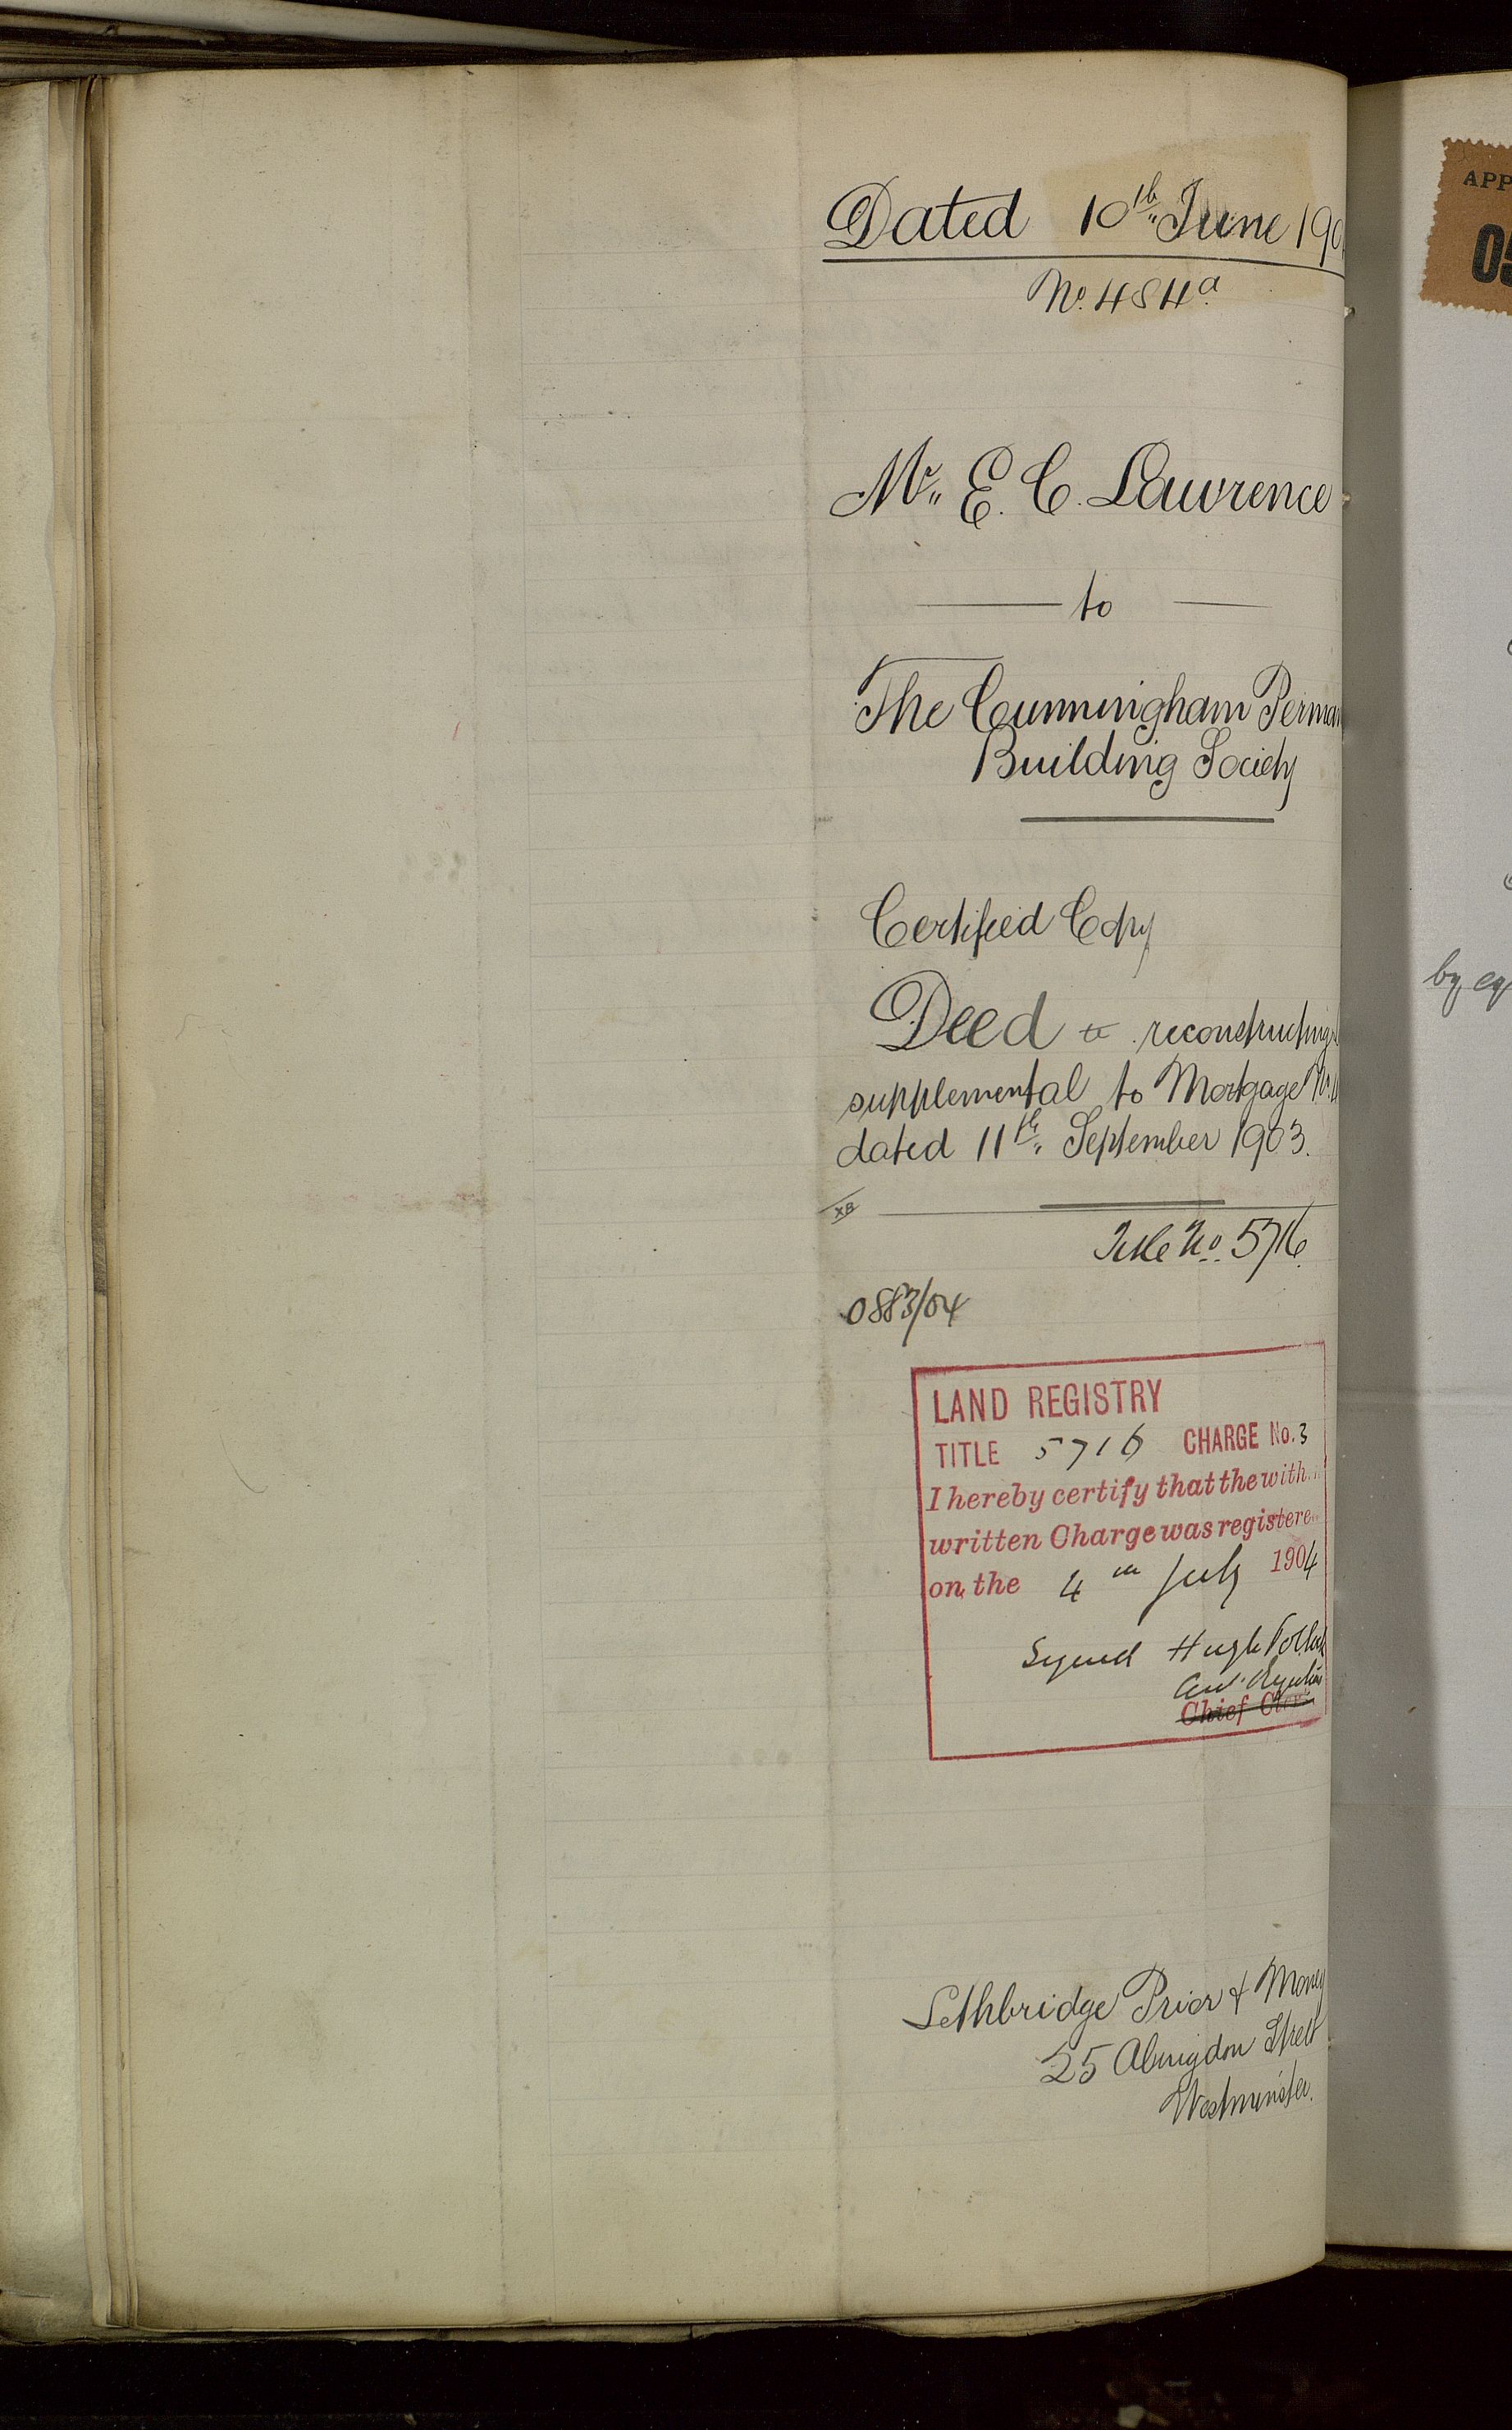 Dated 10th June 190
No. 484a
Mr. E. C. Lawrence
to
The Cunningham Perman
Building Society
Certified Copy
Deed reconstructing
supplemental to Mortgage No.
dated 11th September 1903.
XB
Title No. 5716
0883/04
LAND REGISTRY
TITLE 5716 CHARGE No. 3
I hereby certify that the with
written Charge was registere
on the 4th July 1904
Signed Hugh
Chief
Lethbridge Prior & Money
25 Abingdon Street
Westminster.
APP
05
by